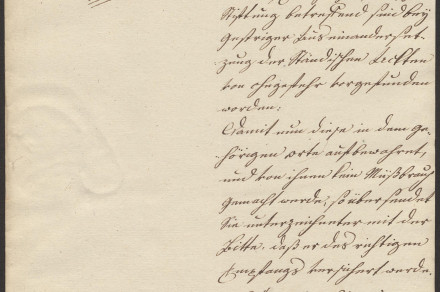 Stiftung betreffend sind bey
gestriger Auseinanderset-
zung der Ständischen Ackten
von ohngefehr vorgefunden
worden:
Damit nun diese in dem ge-
hörigen orte aufbewahret,
und von ihnen kein Mißbrauch
gemacht werde, so übersendet
Sie unterzeichneter mit der
Bitte, daß er des richtigen
Empfangs versichert werde.